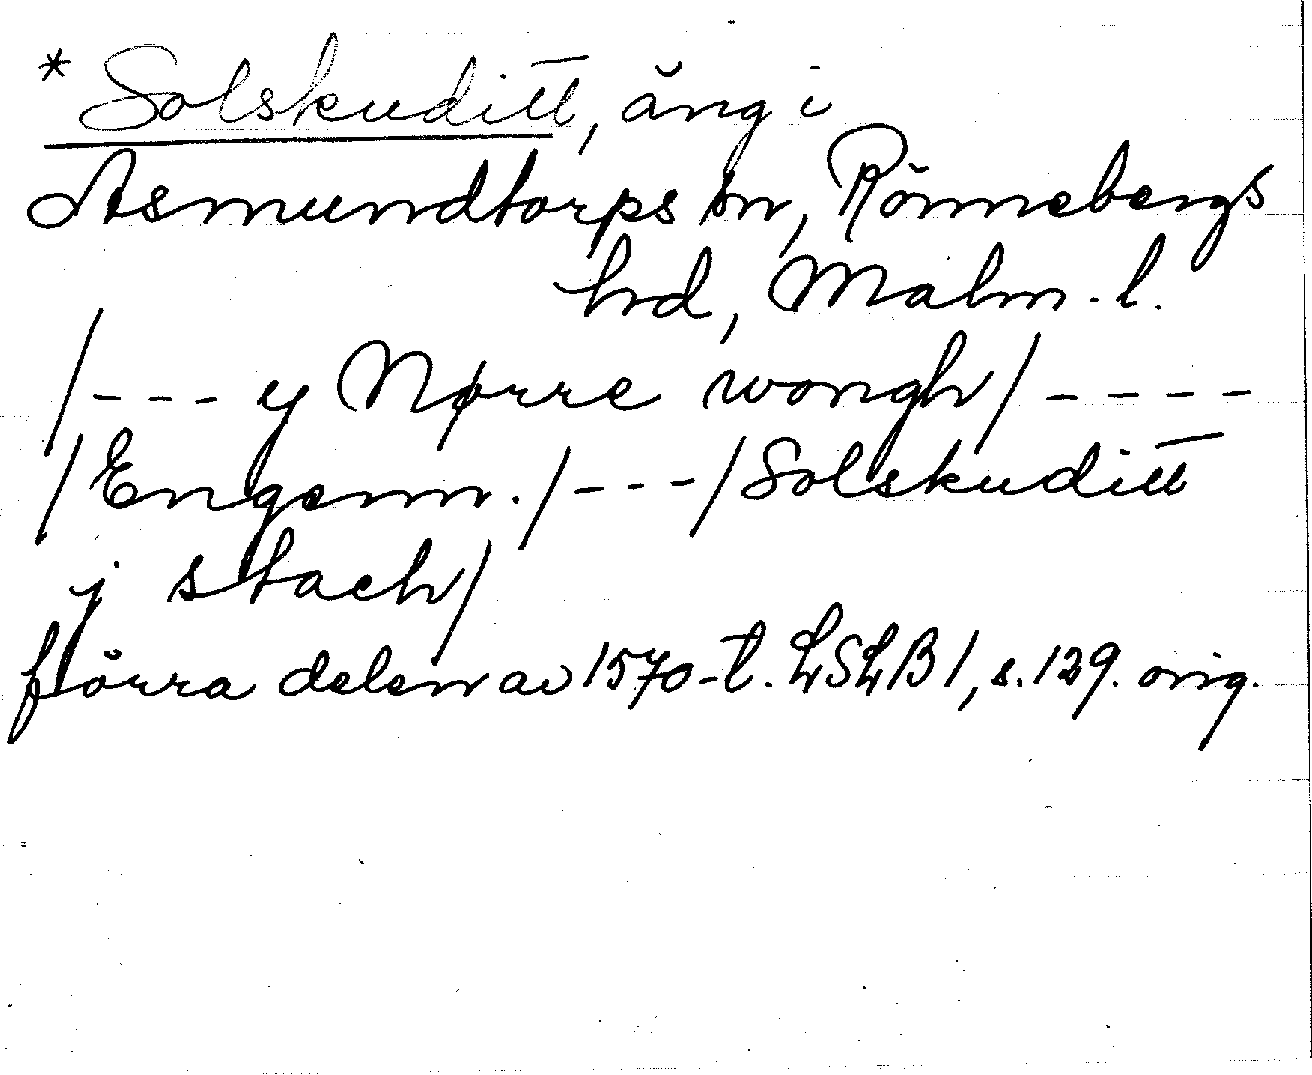 * Solskuditt, äng i
Asmundtorps sn, Rönnebergs
hd, Malm. l.
/--- y Nørre wongh/ ----
/Engenn./---/Solskuditt
j stach/
förra delen av 1570-t. LSLB 1, s. 129. orig.